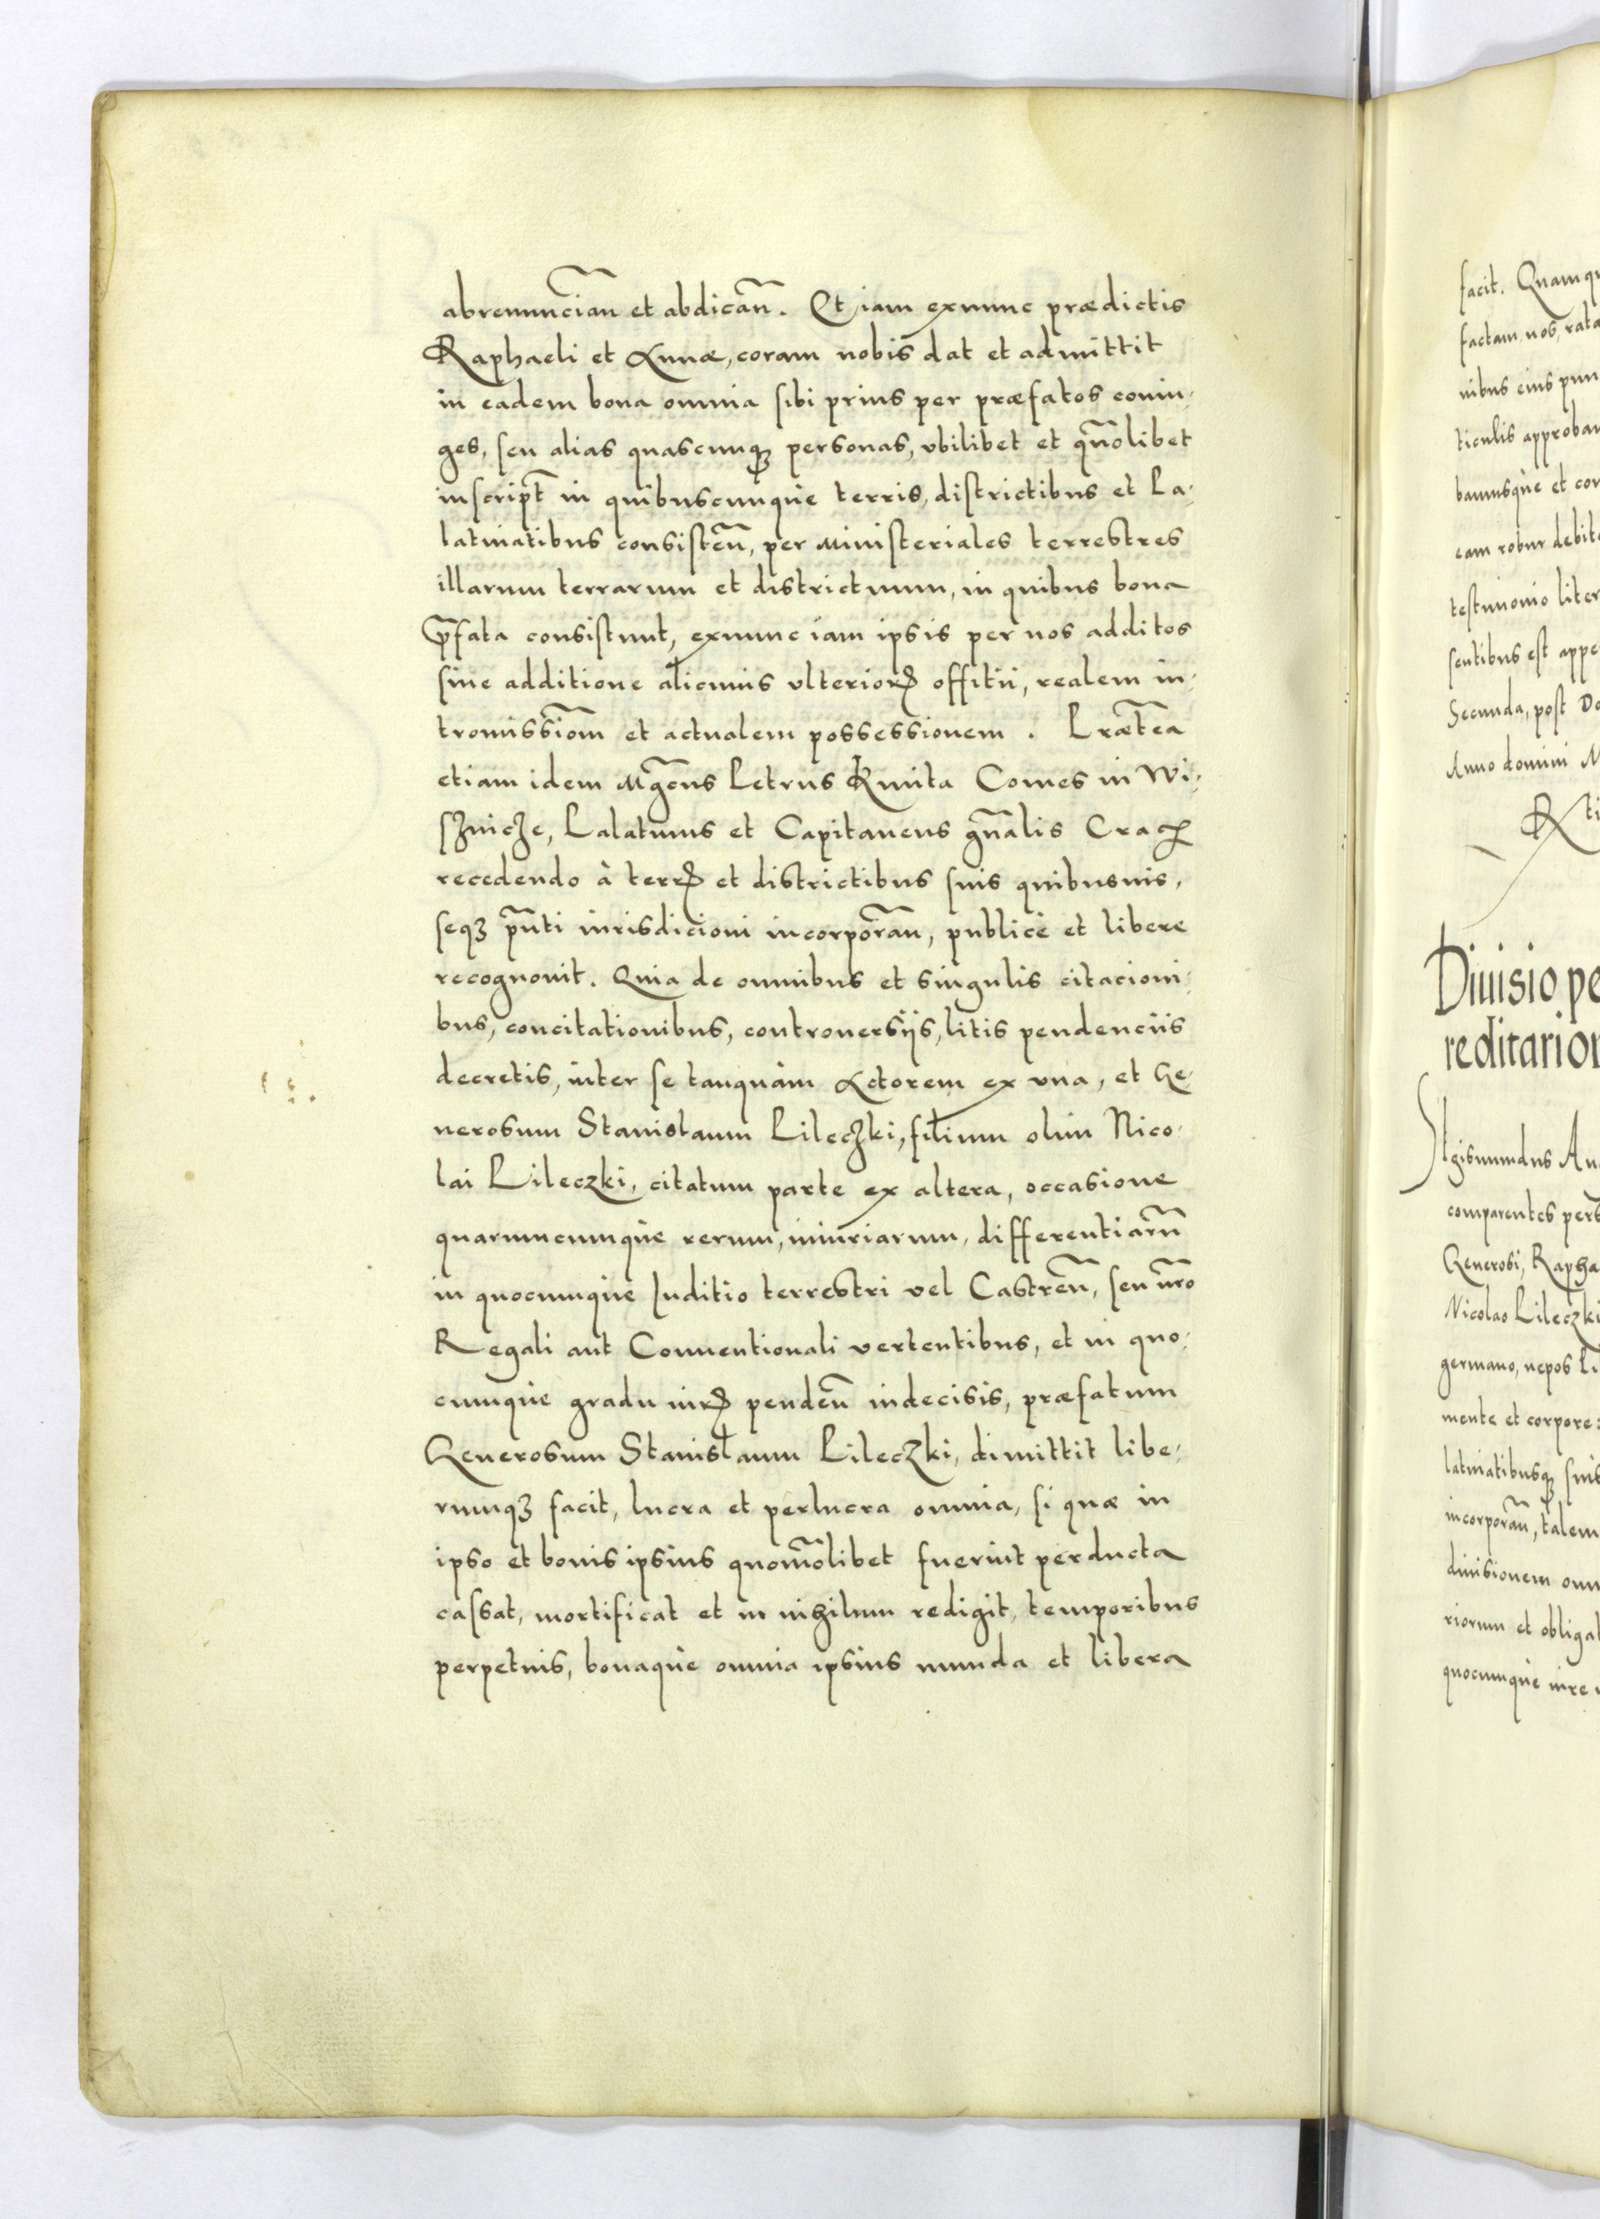 abrenuncian̄ et abdican̄. Et iam exnunc prædictis
Raphaeli et Annæ, coram nobis dat et admittit
in eadem bona omnia sibi prius per præfatos coniu-
ges, seu alias quascunq̨ personas, vbilibet et qn̄olibet
inscript̄ in quibuscunque terris, districtibus et Pa-
latinatibus consisten̄, per Ministeriales terrestres
illarum terrarum et districtuum, in quibus bona
p̄fata consistunt, exnunc iam ipsis per nos additos
sine additione alicuius vlterioꝝ offitii, realem in-
tromissiom̄ et actualem possessionem. Præt̄ea
etiam idem Mgc̄us Petrus Kmita Comes in Wi-
sznicze, Palatinus et Capitaneus gn̄alis Cracꝭ
recedendo à terꝝ et districtibus suis quibusuis,
seqꝫ pn̄ti iurisdicioni incorporan̄, publicè et libere
recognouit. Quia de omnibus et singulis citacioni-
bus, concitationibus, controuersijs, litis pendenciis
decretis, inter se tanquàm Actorem ex vna, et Ge-
nerosum Stanislaum Pileczki, filium olim Nico-
lai Pileczki, citatum parte ex altera, occasione
quarumcunque rerum, iniuriarum, differentiarū
in quocunque Iuditio terrestri vel Castren̄, seu nr̄o
Regali aut Conuentionali vertentibus, et in quo-
cunque gradu iuꝝ penden̄ indecisis, præfatum
Generosum Stanislaum Pileczki, dimittit libe-
rumqꝫ facit, lucra et perlucra omnia, si quæ in
ipso et bonis ipsius quomōlibet fuerint perducta
cassat, mortificat et in nihilum redigit, temporibus
perpetuis, bonaque omnia ipsius munda et libera
facit. Quamqu
factam nos, rata
nibus eius pun
ticulis approbau
bamusque et con
eam robur debit
testimonio liter
sentibus est appe
Secunda, post Do
Anno domini M
Diuisio pe
reditarior
Sigismundus Au
comparentes pers
Generosi, Rapha
Nicolao Pileczki
germano, nepos Pi
mente et corpore
latinatibusqꝫ suis
incorporan̄, talem
diuisionem omn
riorum et obligat
quocunque iure